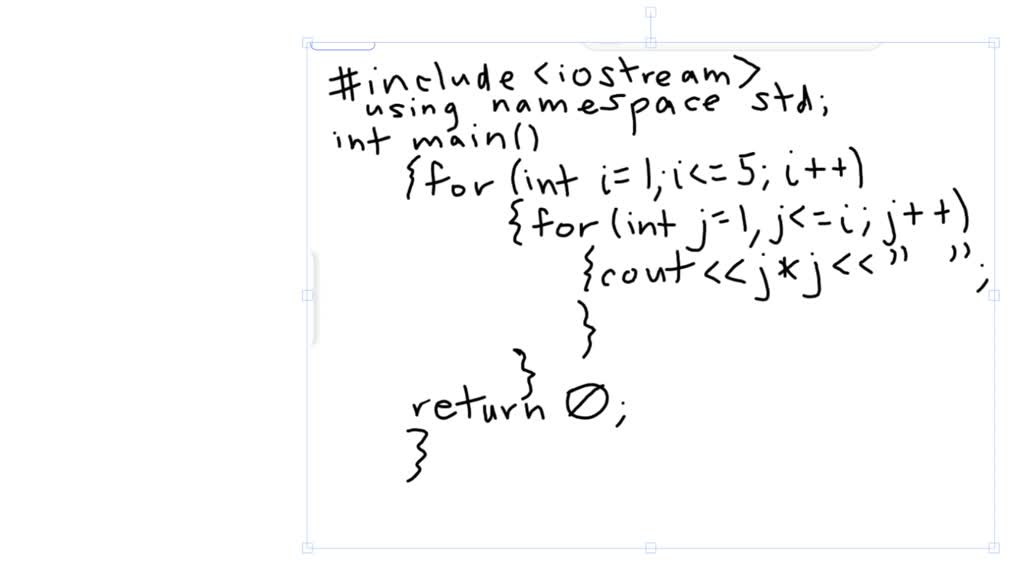 #include <iostream>
using namespace std;
int main()
{for (int i=1;i<=5; i++)
{for (int j=1, j<=i; j++)
{cout<<j*j<<" ";
}
}
return 0;
}